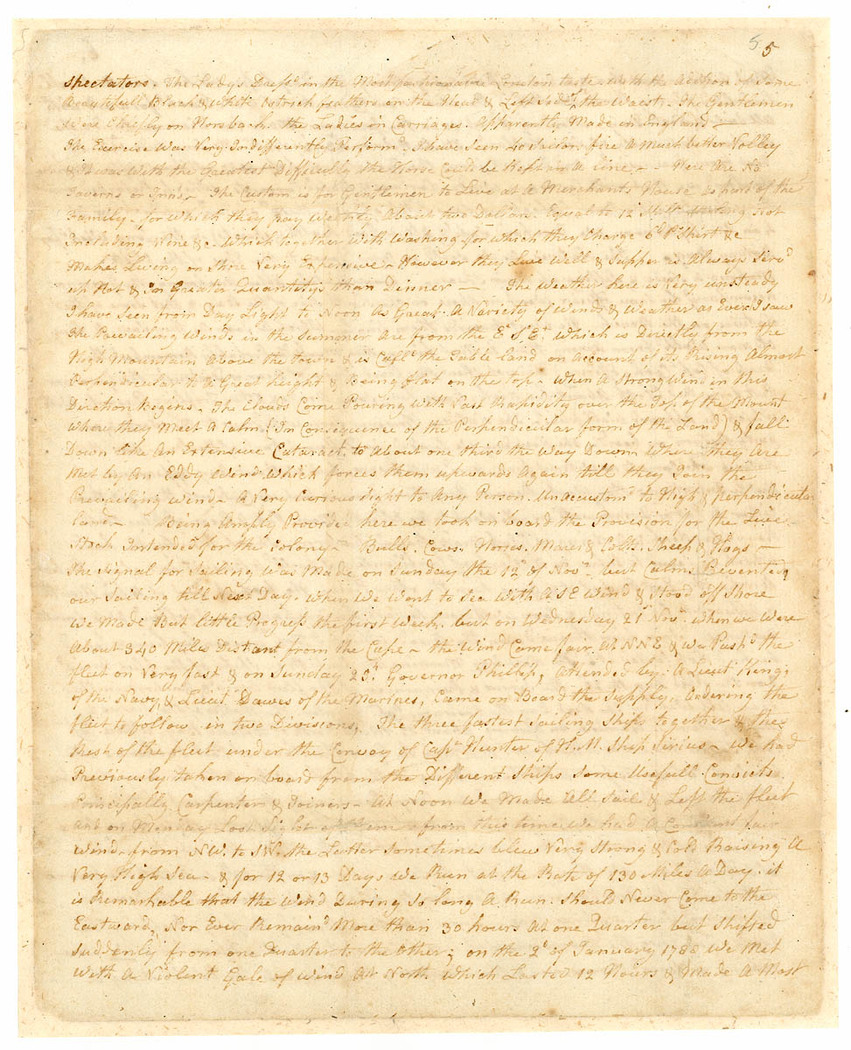 5 5
Spectators. The Ladys Dress'd in the Most fashionable London taste with the Adition of Some
Beautifull Black & White Ostrich feathers on the Head & Left Side of the Waest. The Gentlemen
were Chiefly on Horsback the Ladies in Carriages. Apparently Made in England —
The Exercise Was Very Indifferently Perform'd I have Seen 20 Sailors fire A Much better Volley
& it was With the Greatest Difficulty the Horse Could be Kept in A line, — Here Are No
Taverns or Inns. The Custom is for Gentlemen to Live at A Merchants House as part of the
Family. for Which they pay Weekly About two Dollars. Equal to 12 Not
Including Wine &c. Which together With Washing for Which they Charge 6d Pr Shirt &c
Makes Living on Shore Very Expensive — However they Live Well & Supper is Always Serv'd
up Hot & In Greater Quantitys than Dinner — The Weather here is Very unsteady
I have Seen from Day Light to Noon As Great A Variety of Winds & Weather as Ever I saw
The Prevailing Winds in the Summer Are from the Et S.Et. which is Directly from the
High Mountain Above the town & is Call'd the Table land on Account of its Rising Almost
Perpendicular to A Great height & Being flat on the top — When A Strong Wind in this
Direction Begins. The Clouds Come Pouring With Vast Rapidity over the Top of the Mount
Where they Meet A Calm (In Consequence of the Perpendicular form of the Land) & fall
Down like An Extensive Cataract to About one third the Way Down Where they Are
Met by An Eddy Wind which forces them upwards Again till they Join the
Prevailing wind — A Very Curious Sight to Any Person Unaccustom'd to High & perpendicular
land — Being Amply Provided here we took on board the Provision for the Live
Stock Intended for the Colony — Bulls. Cows. Horses. Mares & Colts. Sheep & Hogs —
The Signal for Sailing Was Made on Sunday the 12th of Novr. but Calms Preventing
our Sailing till Next Day. when We Went to Sea With A S E Wind & Stood off Shore
we Made But little Progress the first Week. but on Wednesday 21st Novr. when we Were
About 340 Miles Distant from the Cape — the Wind Came fair At NNE & we Push'd the
fleet on Very fast & on Sunday 25th Governor Phillip, Attended by A Lieut King,
of the Navy & Lieut Dawes of the Marines, Came on Board the Supply. Ordering the
fleet to follow in two Divisions, The three fastest Sailing Ships together & the
Rest of the fleet under the Convoy of Captn Hunter of H.M. Ship Sirius — We had
Previously taken on board from the Different Ships Some Usefull Convicts
Principally Carpenters & Joiners — At Noon We Made All Sail & Left the fleet
and on Monday Lost Sight of them — from this time we had A Constant fair
Wind from N.W. to S.W. the Latter Sometimes blew Very Strong & Cold Raising A
Very High Sea — & for 12 or 13 Days we Run at the Rate of 130 Miles A Day. it
is Remarkable that the Wind During So long A Run. Should Never Come to the
Eastward, Nor Ever Remain'd More than 30 hours At one Quarter but Shifted
Suddenly from one Quarter to the Other; on the 2d of January 1788 We Met
With A Violent Gale of Wind At North Which Lasted 12 Hours & Made A Most